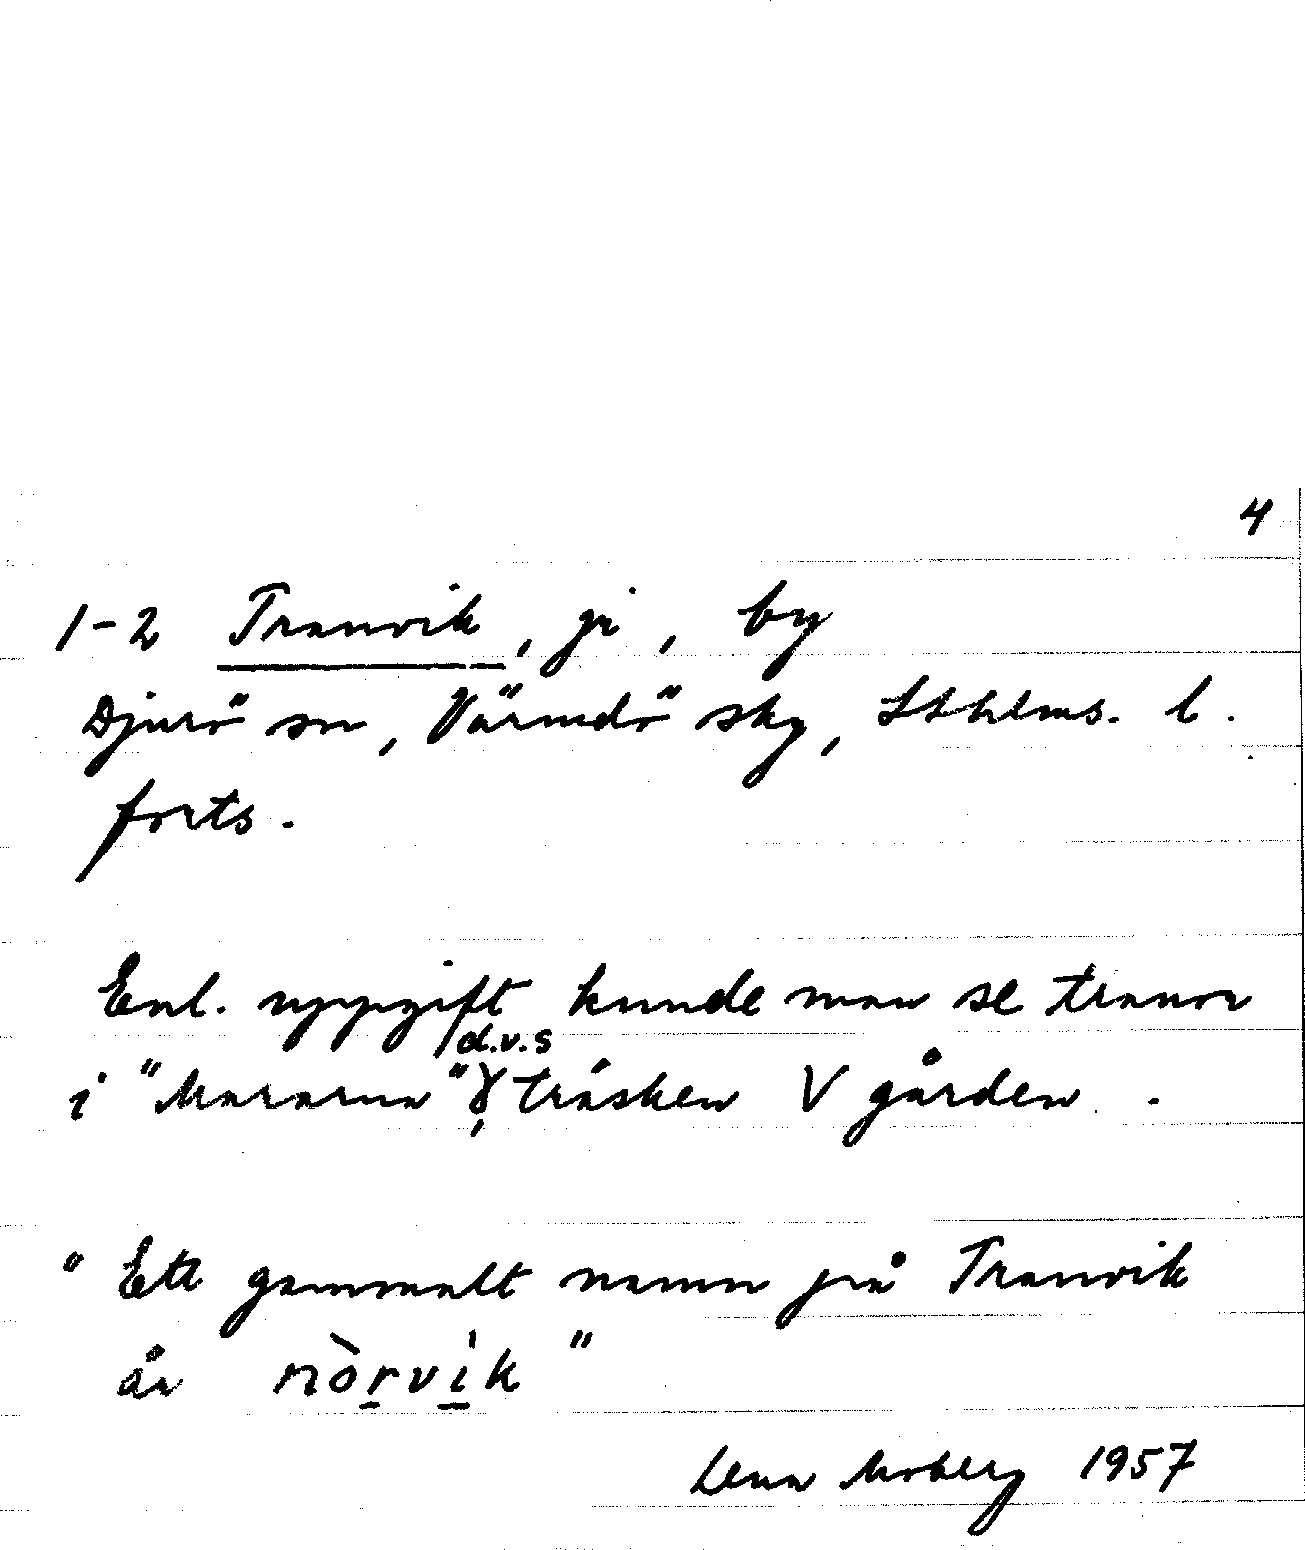 4
1-2 Tranvik, gd, by
Djurö sn, Värmdö sky, Sthlms. l.
forts.
Enl. uppgift kunde man se tranor
d.v.s
i "Mararna" träsken V gården .
" Ett gammalt namn på Tranvik
är nòrvìk "
Lena Moberg 1957